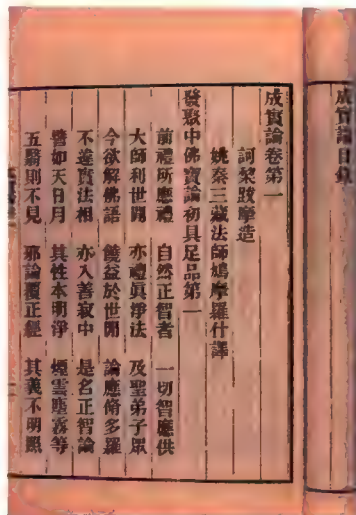 成實論目錄
成實論卷第一
訶棃跋摩造
姚秦三藏法師鳩摩羅什譯
發聚中佛寶論初具足品第一
前禮所應禮 自然正智者 一切智應供
大師利世間 亦禮眞淨法 及聖弟子眾
今欲解佛語 饒益於世間 論應脩多羅
不違實法相 亦入善寂中 是名正智論
譬如天日月 其性本明淨 煙雲塵霧等
五翳則不見 邪論覆正經 其義不明照